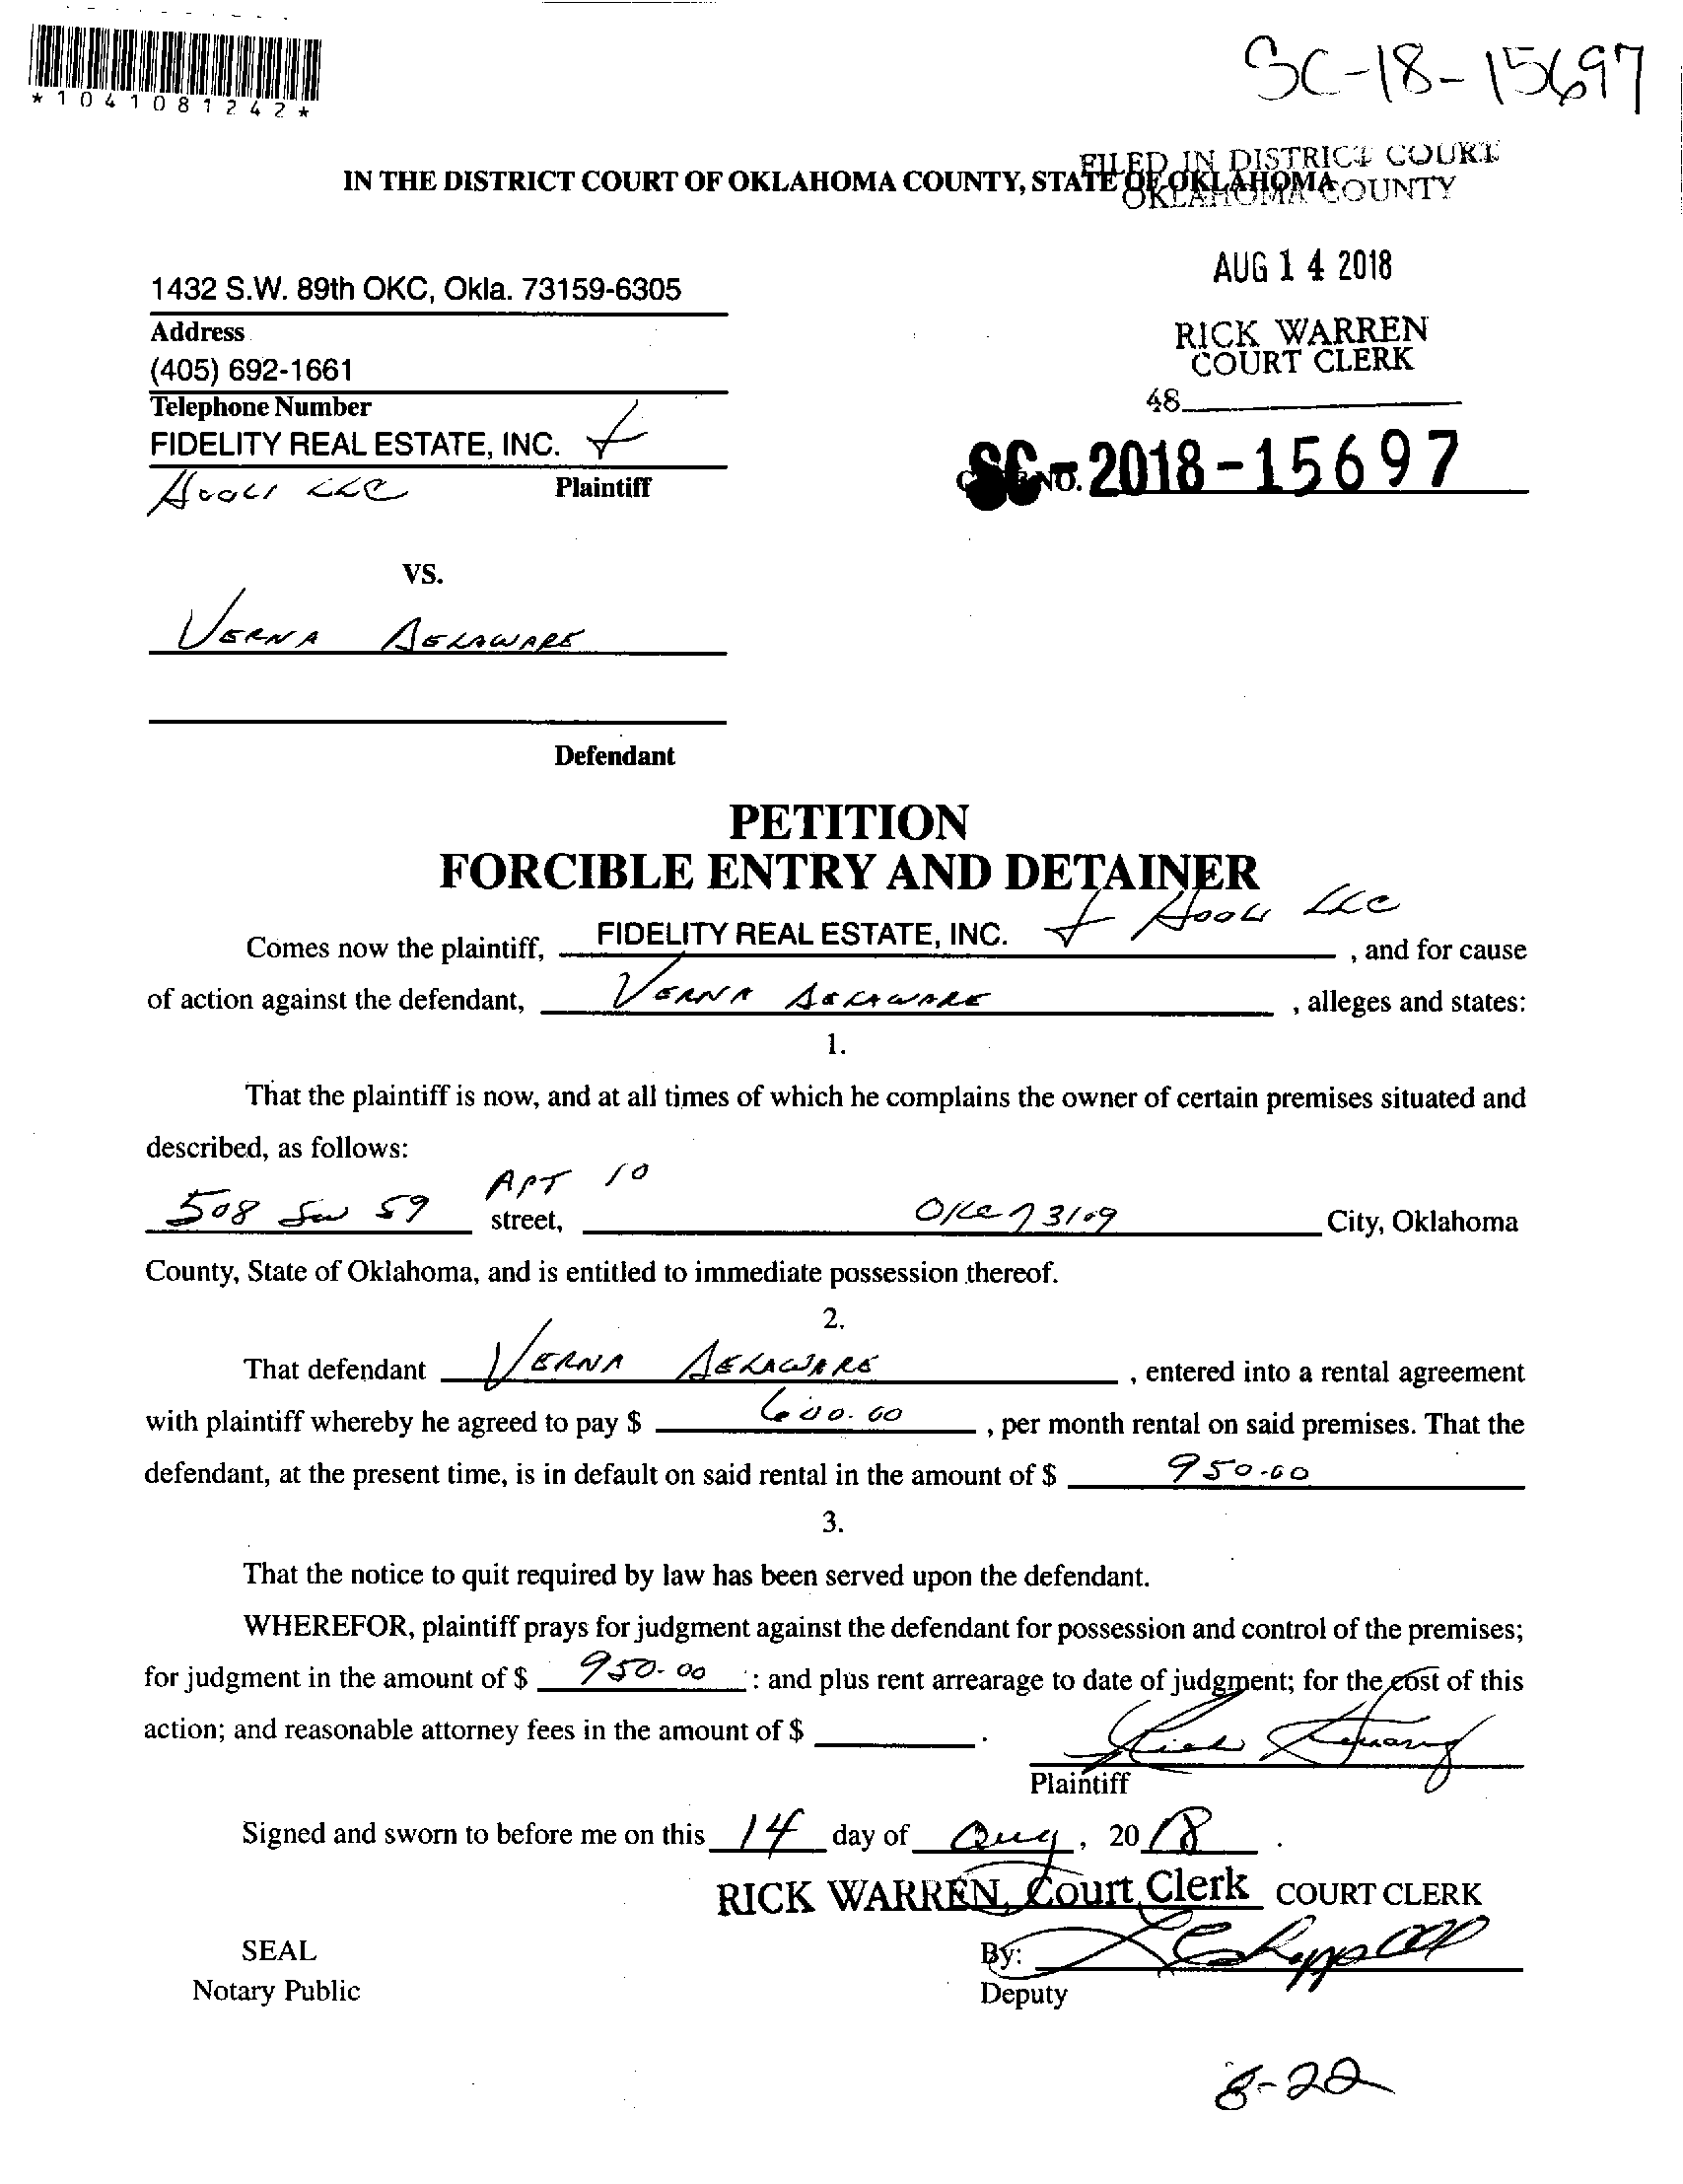 *1041081242*
SC-18-15697
FILED IN DISTRICT COURT
OKLAHOMA COUNTY
IN THE DISTRICT COURT OF OKLAHOMA COUNTY, STATE OF OKLAHOMA
AUG 14 2018
1432 S.W. 89th OKC, Okla. 73159-6305
Address
RICK WARREN
COURT CLERK
(405) 692-1661
Telephone Number
48
FIDELITY REAL ESTATE, INC. +
SC-2018-15697
NO.
LLC Plaintiff
VS.
VERNA DELAWARE
Defendant
PETITION
FORCIBLE ENTRY AND DETAINER
Comes now the plaintiff, FIDELITY REAL ESTATE, INC. + LLC, and for cause
of action against the defendant, VERNA DELAWARE, alleges and states:
1.
That the plaintiff is now, and at all times of which he complains the owner of certain premises situated and
described, as follows:
APT 10
508 SW 59 street, OKC 73109 City, Oklahoma
County, State of Oklahoma, and is entitled to immediate possession thereof.
2.
That defendant VERNA DELAWARE, entered into a rental agreement
with plaintiff whereby he agreed to pay $ 600.00, per month rental on said premises. That the
defendant, at the present time, is in default on said rental in the amount of $ 950.00
3.
That the notice to quit required by law has been served upon the defendant.
WHEREFOR, plaintiff prays for judgment against the defendant for possession and control of the premises;
for judgment in the amount of $ 950.00 : and plus rent arrearage to date of judgment; for the cost of this
action; and reasonable attorney fees in the amount of $ .
Plaintiff
Signed and sworn to before me on this 14 day of Aug, 2018.
RICK WARREN, Court Clerk COURT CLERK
SEAL
By:
Notary Public
Deputy
8-22